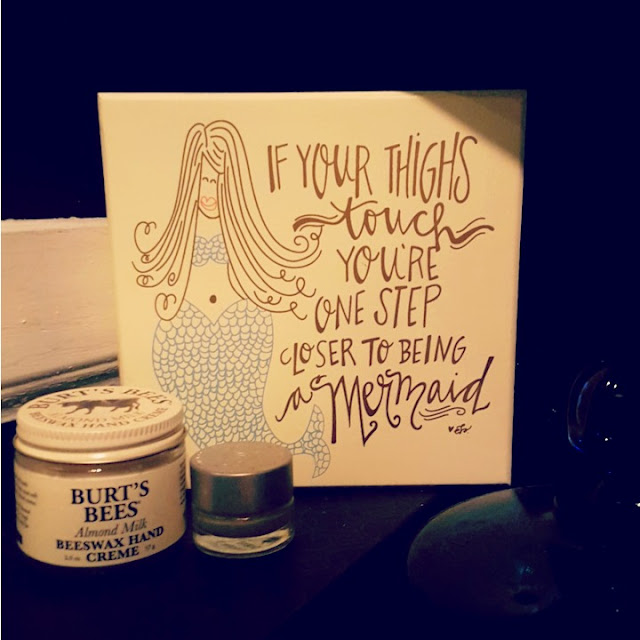 IF YOUR THIGHS
touch
YOU'RE
ONE STEP
CLOSER TO BEING
a Mermaid
BURT'S BEES
HAND CREME
BURT'S
BEES
Almond Milk
BEESWAX HAND
CREME